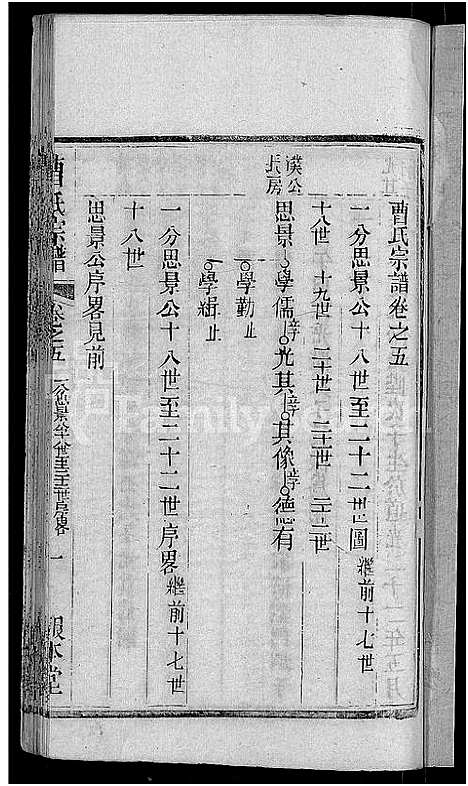 曹氏宗譜卷之五
一分思景公十八世至二十二世圖 繼前十七世
十八世 十九世 二十世 二十一世 二十二世
漢公長房
思景 學儒 光其 其像 德有
學勤止
學緝止
一分思景公十八世至二十二世序畧 繼前十七世
十八世
思景公序畧見前
曹氏宗譜 卷之五 一 報本堂